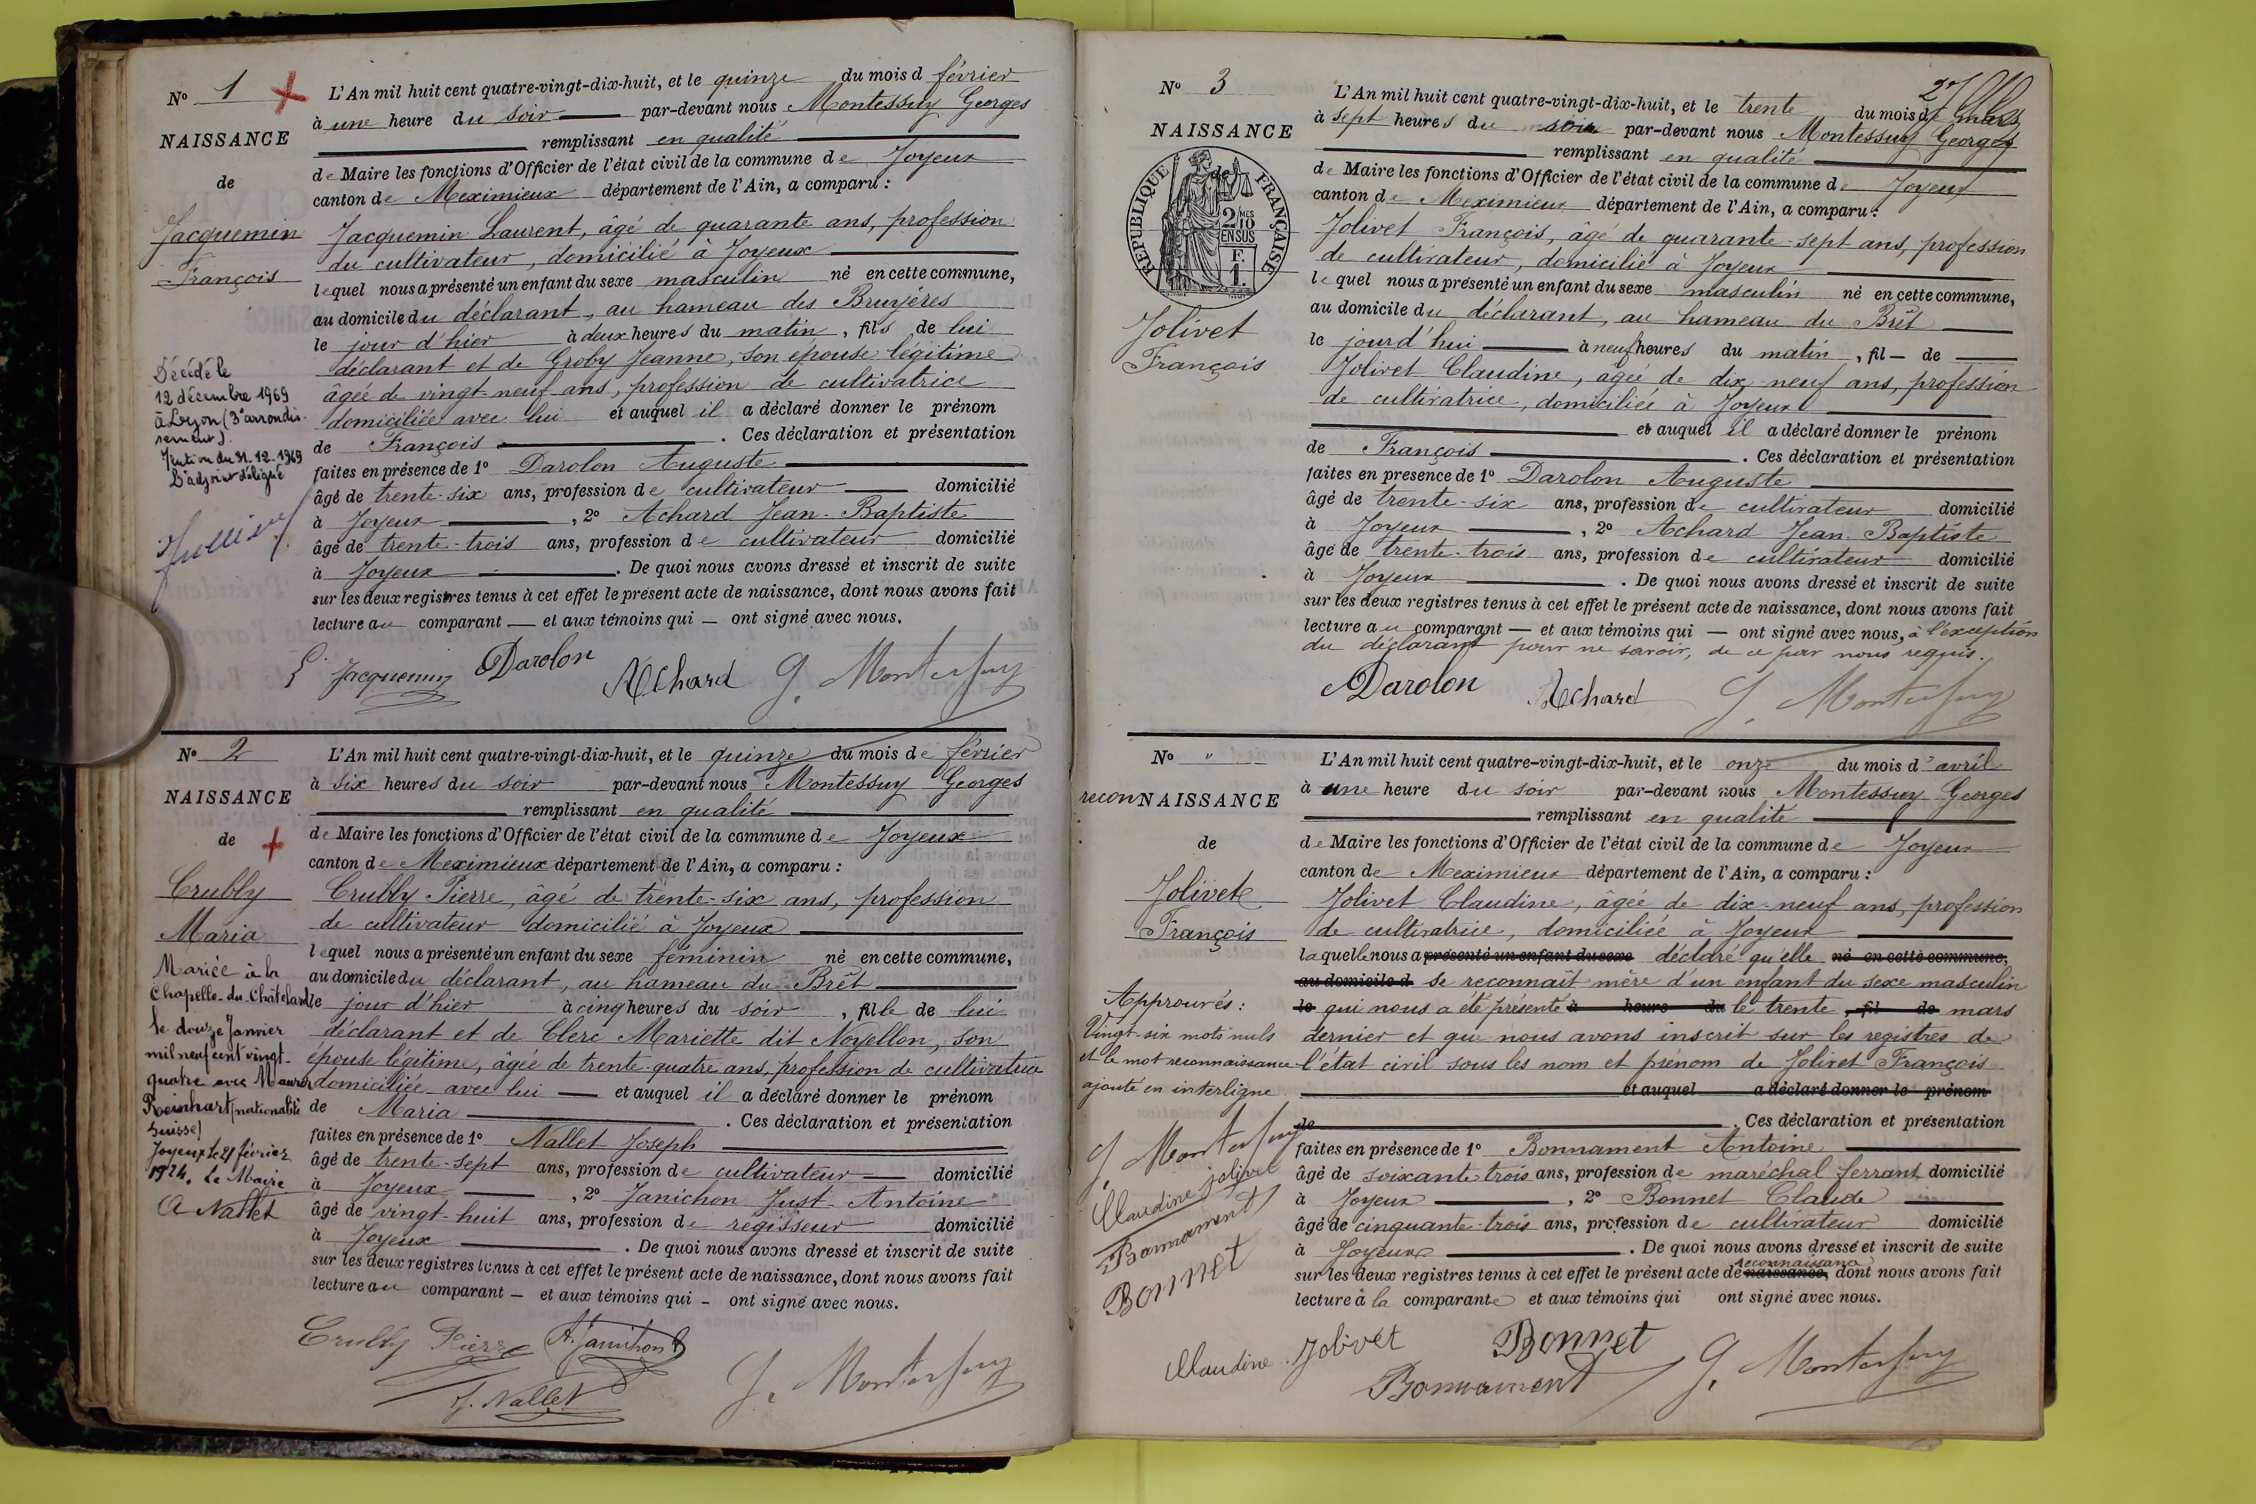 N° 1
NAISSANCE
de
Jacquemin
François
Décédé le
12 décembre 1969
à Lyon (3e arrondis-
sement).
du 31.12.1969
L'adjoint délégué
L'An mil huit cent quatre-vingt-dix-huit, et le quinze du mois d février
à une heure du soir par-devant nous Montessuy Georges
remplissant en qualité
de Maire les fonctions d'Officier de l'état civil de la commune de Joyeux
canton de Meximieux département de l'Ain, a comparu :
Jacquemin Laurent, âgé de quarante ans, profession
du cultivateur, domicilié à Joyeux
lequel nous a présenté un enfant du sexe masculin né en cette commune,
au domicile du déclarant, au hameau des Bruyères
le jour d'hier à deux heures du matin, fils de lui
déclarant et de Groby Jeanne, son épouse légitime
âgée de vingt-neuf ans, profession de cultivatrice
domiciliée avec lui et auquel il a déclaré donner le prénom
de François . Ces déclaration et présentation
faites en présence de 1° Darolon Auguste
âgé de trente-six ans, profession de cultivateur domicilié
à Joyeux , 2° Achard Jean-Baptiste
âgé de trente-trois ans, profession de cultivateur domicilié
à Joyeux . De quoi nous avons dressé et inscrit de suite
sur les deux registres tenus à cet effet le présent acte de naissance, dont nous avons fait
lecture au comparant — et aux témoins qui — ont signé avec nous.
L. Jacquemin Darolon Achard G. Montessuy
N° 2
NAISSANCE
de
Crubly
Maria
Mariée à la
Chapelle-du-Châtelard
le douze Janvier
mil neuf cent vingt-
quatre avec Maurer
Reinhart (nationalité
Suisse)
Joyeux le 21 février
1924. Le Maire
A Nallet
L'An mil huit cent quatre-vingt-dix-huit, et le quinze du mois de février
à six heures du soir par-devant nous Montessuy Georges
remplissant en qualité
de Maire les fonctions d'Officier de l'état civil de la commune de Joyeux
canton de Meximieux département de l'Ain, a comparu :
Crubly Pierre, âgé de trente-six ans, profession
de cultivateur domicilié à Joyeux
lequel nous a présenté un enfant du sexe féminin né en cette commune,
au domicile du déclarant, au hameau du Brêt
le jour d'hier à cinq heures du soir , fille de lui
déclarant et de Clerc Mariette dit Noyellon, son
épouse légitime, âgée de trente-quatre ans, profession de cultivatrice
domiciliée avec lui — et auquel il a déclaré donner le prénom
de Maria . Ces déclaration et présentation
faites en présence de 1° Nallet Joseph
âgé de trente-sept ans, profession de cultivateur — domicilié
à Joyeux , 2° Janichon Just-Antoine
âgé de vingt-huit ans, profession de régisseur domicilié
à Joyeux . De quoi nous avons dressé et inscrit de suite
sur les deux registres tenus à cet effet le présent acte de naissance, dont nous avons fait
lecture au comparant — et aux témoins qui — ont signé avec nous.
Crubly Pierre A. Janichon
J. Nallet G. Montessuy
27
N° 3
NAISSANCE
de
RÉPUBLIQUE FRANÇAISE
2 MES
/10
EN SUS
F.
1.
Jolivet
François
L'An mil huit cent quatre-vingt-dix-huit, et le trente du mois de mars
à sept heures du soir par-devant nous Montessuy Georges
remplissant en qualité
de Maire les fonctions d'Officier de l'état civil de la commune de Joyeux
canton de Meximieux département de l'Ain, a comparu :
Jolivet François, âgé de quarante-sept ans, profession
de cultivateur, domicilié à Joyeux
lequel nous a présenté un enfant du sexe masculin né en cette commune,
au domicile du déclarant, au hameau du Brêt
le jourd'hui à neuf heures du matin , fil — de
Jolivet Claudine, âgée de dix-neuf ans, profession
de cultivatrice, domiciliée à Joyeux
et auquel il a déclaré donner le prénom
de François . Ces déclaration et présentation
faites en présence de 1° Darolon Auguste
âgé de trente-six ans, profession de cultivateur domicilié
à Joyeux , 2° Achard Jean-Baptiste
âgé de trente-trois ans, profession de cultivateur domicilié
à Joyeux . De quoi nous avons dressé et inscrit de suite
sur les deux registres tenus à cet effet le présent acte de naissance, dont nous avons fait
lecture au comparant — et aux témoins qui — ont signé avec nous, à l'exception
du déclarant pour ne savoir, de ce par nous requis.
Darolon Achard G. Montessuy
N° "
reconNAISSANCE
de
Jolivet
François
Approuvés :
Vingt-six mots nuls
et le mot reconnaissance
ajouté en interligne
G. Montessuy
Claudine jolivet
Bonnament
Bonnet
L'An mil huit cent quatre-vingt-dix-huit, et le onze du mois d'avril
à une heure du soir par-devant nous Montessuy Georges
remplissant en qualité
de Maire les fonctions d'Officier de l'état civil de la commune de Joyeux
canton de Meximieux département de l'Ain, a comparu :
Jolivet Claudine, âgée de dix-neuf ans, profession
de cultivatrice, domiciliée à Joyeux
laquelle nous a présenté un enfant du sexe déclaré qu'elle né en cette commune,
au domicile d se reconnaît mère d'un enfant du sexe masculin
le qui nous a été présenté à heure du le trente , fil de mars
dernier et que nous avons inscrit sur les registres de
l'état civil sous les nom et prénom de Jolivet François
et auquel a déclaré donner le prénom
de . Ces déclaration et présentation
faites en présence de 1° Bonnament Antoine
âgé de soixante-trois ans, profession de maréchal ferrant domicilié
à Joyeux , 2° Bonnet Claude
âgé de cinquante-trois ans, profession de cultivateur domicilié
à Joyeux . De quoi nous avons dressé et inscrit de suite
reconnaissance
sur les deux registres tenus à cet effet le présent acte de naissance, dont nous avons fait
lecture à la comparante et aux témoins qui ont signé avec nous.
Claudine Jolivet Bonnet
Bonnament G. Montessuy